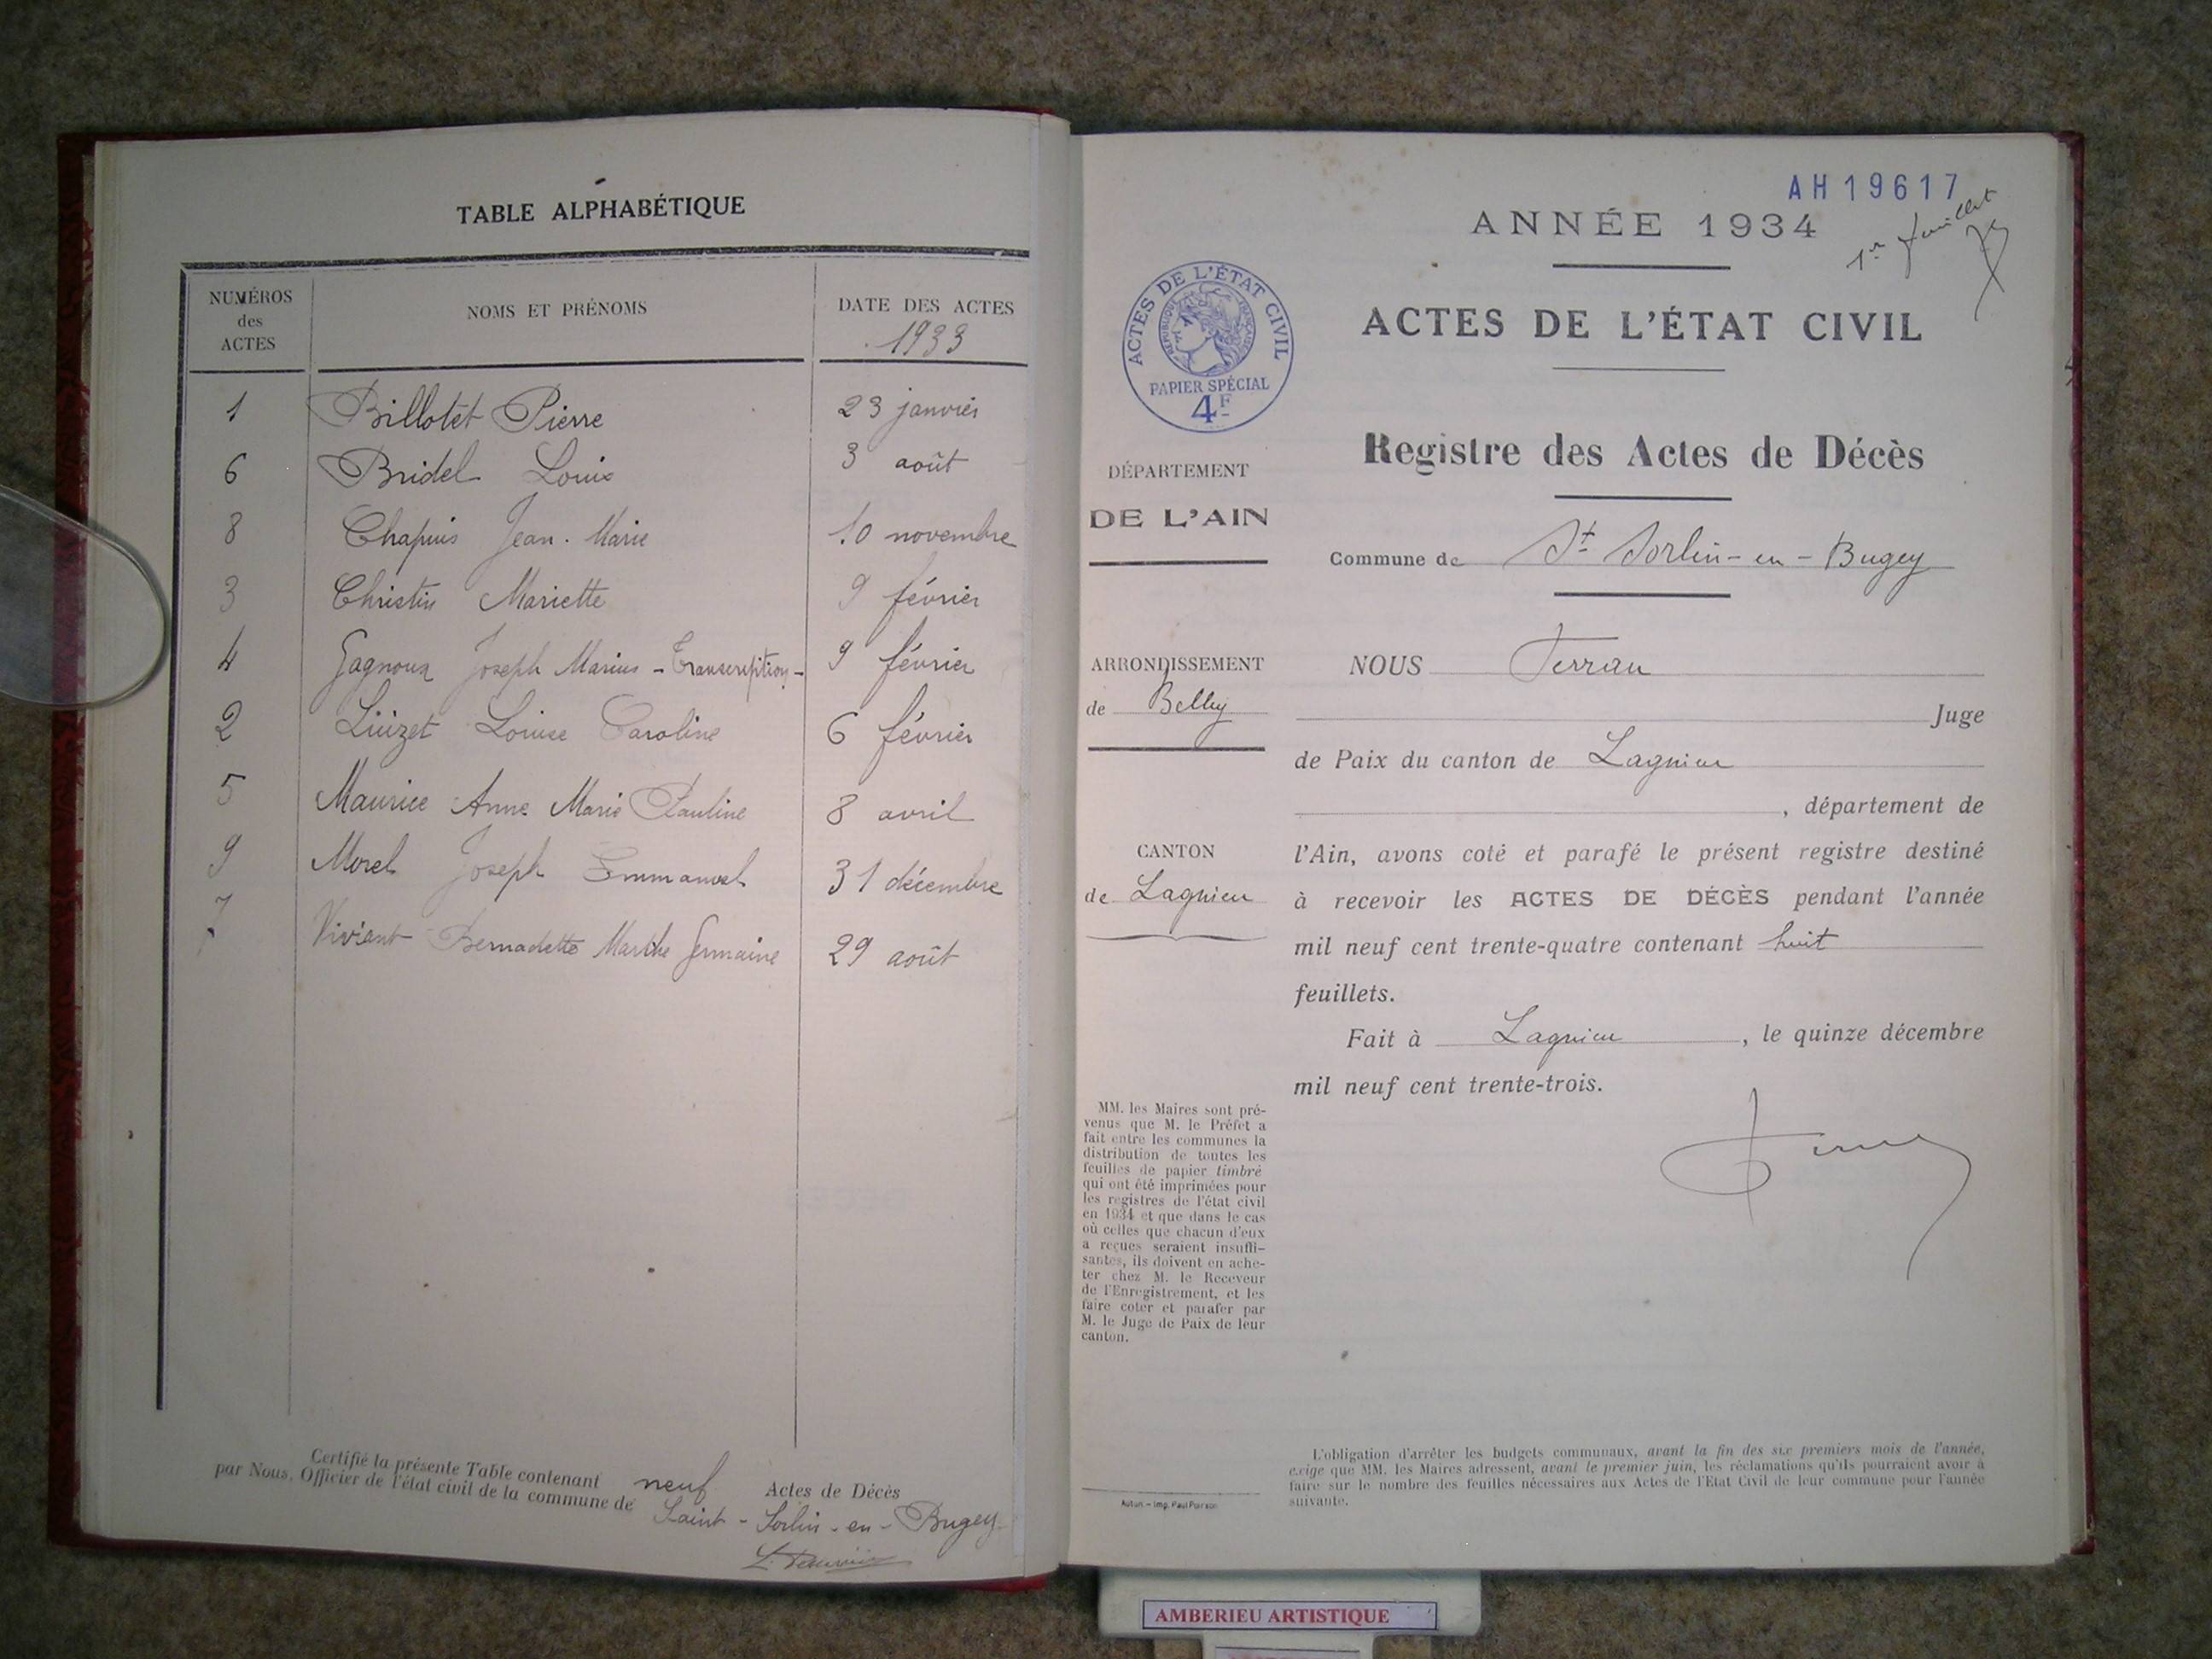 TABLE ALPHABÉTIQUE
NUMÉROS
des
ACTES
NOMS ET PRÉNOMS
DATE DES ACTES
1933
1 Billotet Pierre 23 janvier
6 Bridel Louis 3 août
8 Chapuis Jean-Marie 10 novembre
3 Christin Mariette 9 février
4 Gagnoux Joseph Marius - Transcription - 9 février
2 Liuzet Louise Caroline 6 février
5 Maurice Anne Marie Pauline 8 avril
9 Morel Joseph Emmanuel 31 décembre
7 Vivient Bernadette Marthe Germaine 29 août
Certifié la présente Table contenant neuf Actes de Décès
par Nous, Officier de l'état civil de la commune de Saint-Sorlin-en-Bugey
AH19617
ANNÉE 1934
1er feuillet
ACTES DE L'ÉTAT CIVIL
RÉPUBLIQUE FRANÇAISE
PAPIER SPÉCIAL
4F
ACTES DE L'ÉTAT CIVIL
Registre des Actes de Décès
DÉPARTEMENT
DE L'AIN
Commune de St Sorlin-en-Bugey
ARRONDISSEMENT
de Belley
CANTON
de Lagnieu
NOUS Ferran
Juge
de Paix du canton de Lagnieu
, département de
l'Ain, avons coté et parafé le présent registre destiné
à recevoir les ACTES DE DÉCÈS pendant l'année
mil neuf cent trente-quatre contenant huit
feuillets.
Fait à Lagnieu, le quinze décembre
mil neuf cent trente-trois.
MM. les Maires sont pré-
venus que M. le Préfet a
fait entre les communes la
distribution de toutes les
feuilles de papier timbré
qui ont été imprimées pour
les registres de l'état civil
en 1934 et que dans le cas
où celles que chacun d'eux
a reçues seraient insuffi-
santes, ils doivent en ache-
ter chez M. le Receveur
de l'Enregistrement, et les
faire coter et parafer par
M. le Juge de Paix de leur
canton.
Autun. - Imp. Paul Poirson
L'obligation d'arrêter les budgets communaux, avant la fin des six premiers mois de l'année,
exige que MM. les Maires adressent, avant le premier juin, les réclamations qu'ils pourraient avoir à
faire sur le nombre des feuilles nécessaires aux Actes de l'Etat Civil de leur commune pour l'année
suivante.
AMBERIEU ARTISTIQUE